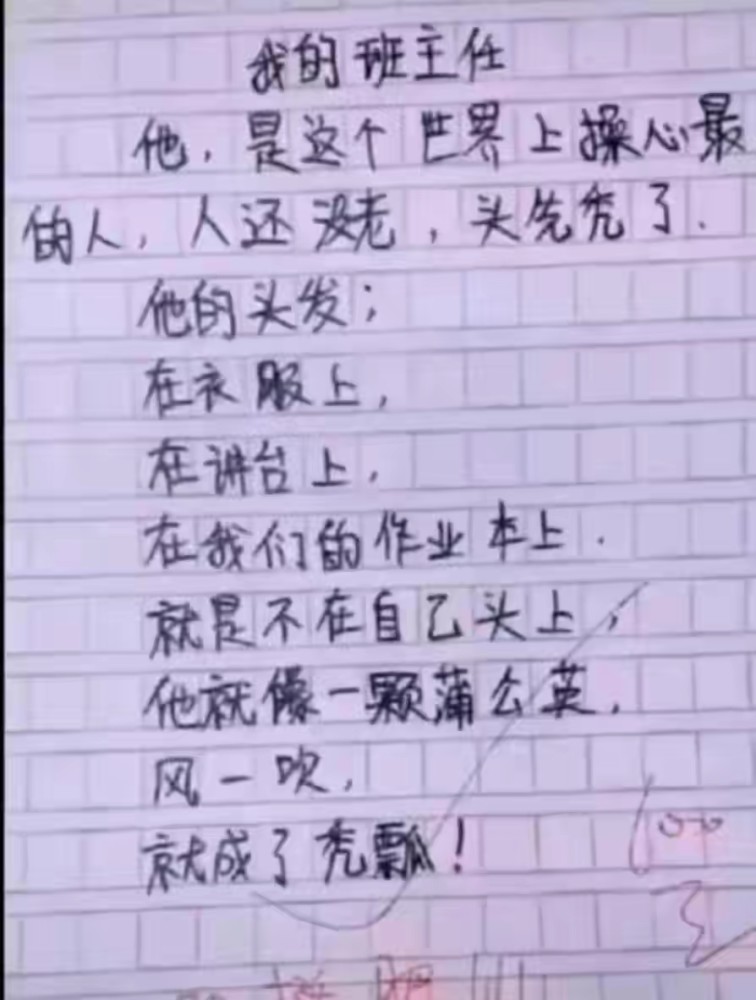 我的班主任
他，是这个世界上操心最
的人，人还没老，头先秃了.
他的头发；
在衣服上，
在讲台上，
在我们的作业本上.
就是不在自己头上，
他就像一颗蒲公英，
风一吹，
就成了秃瓢！
100